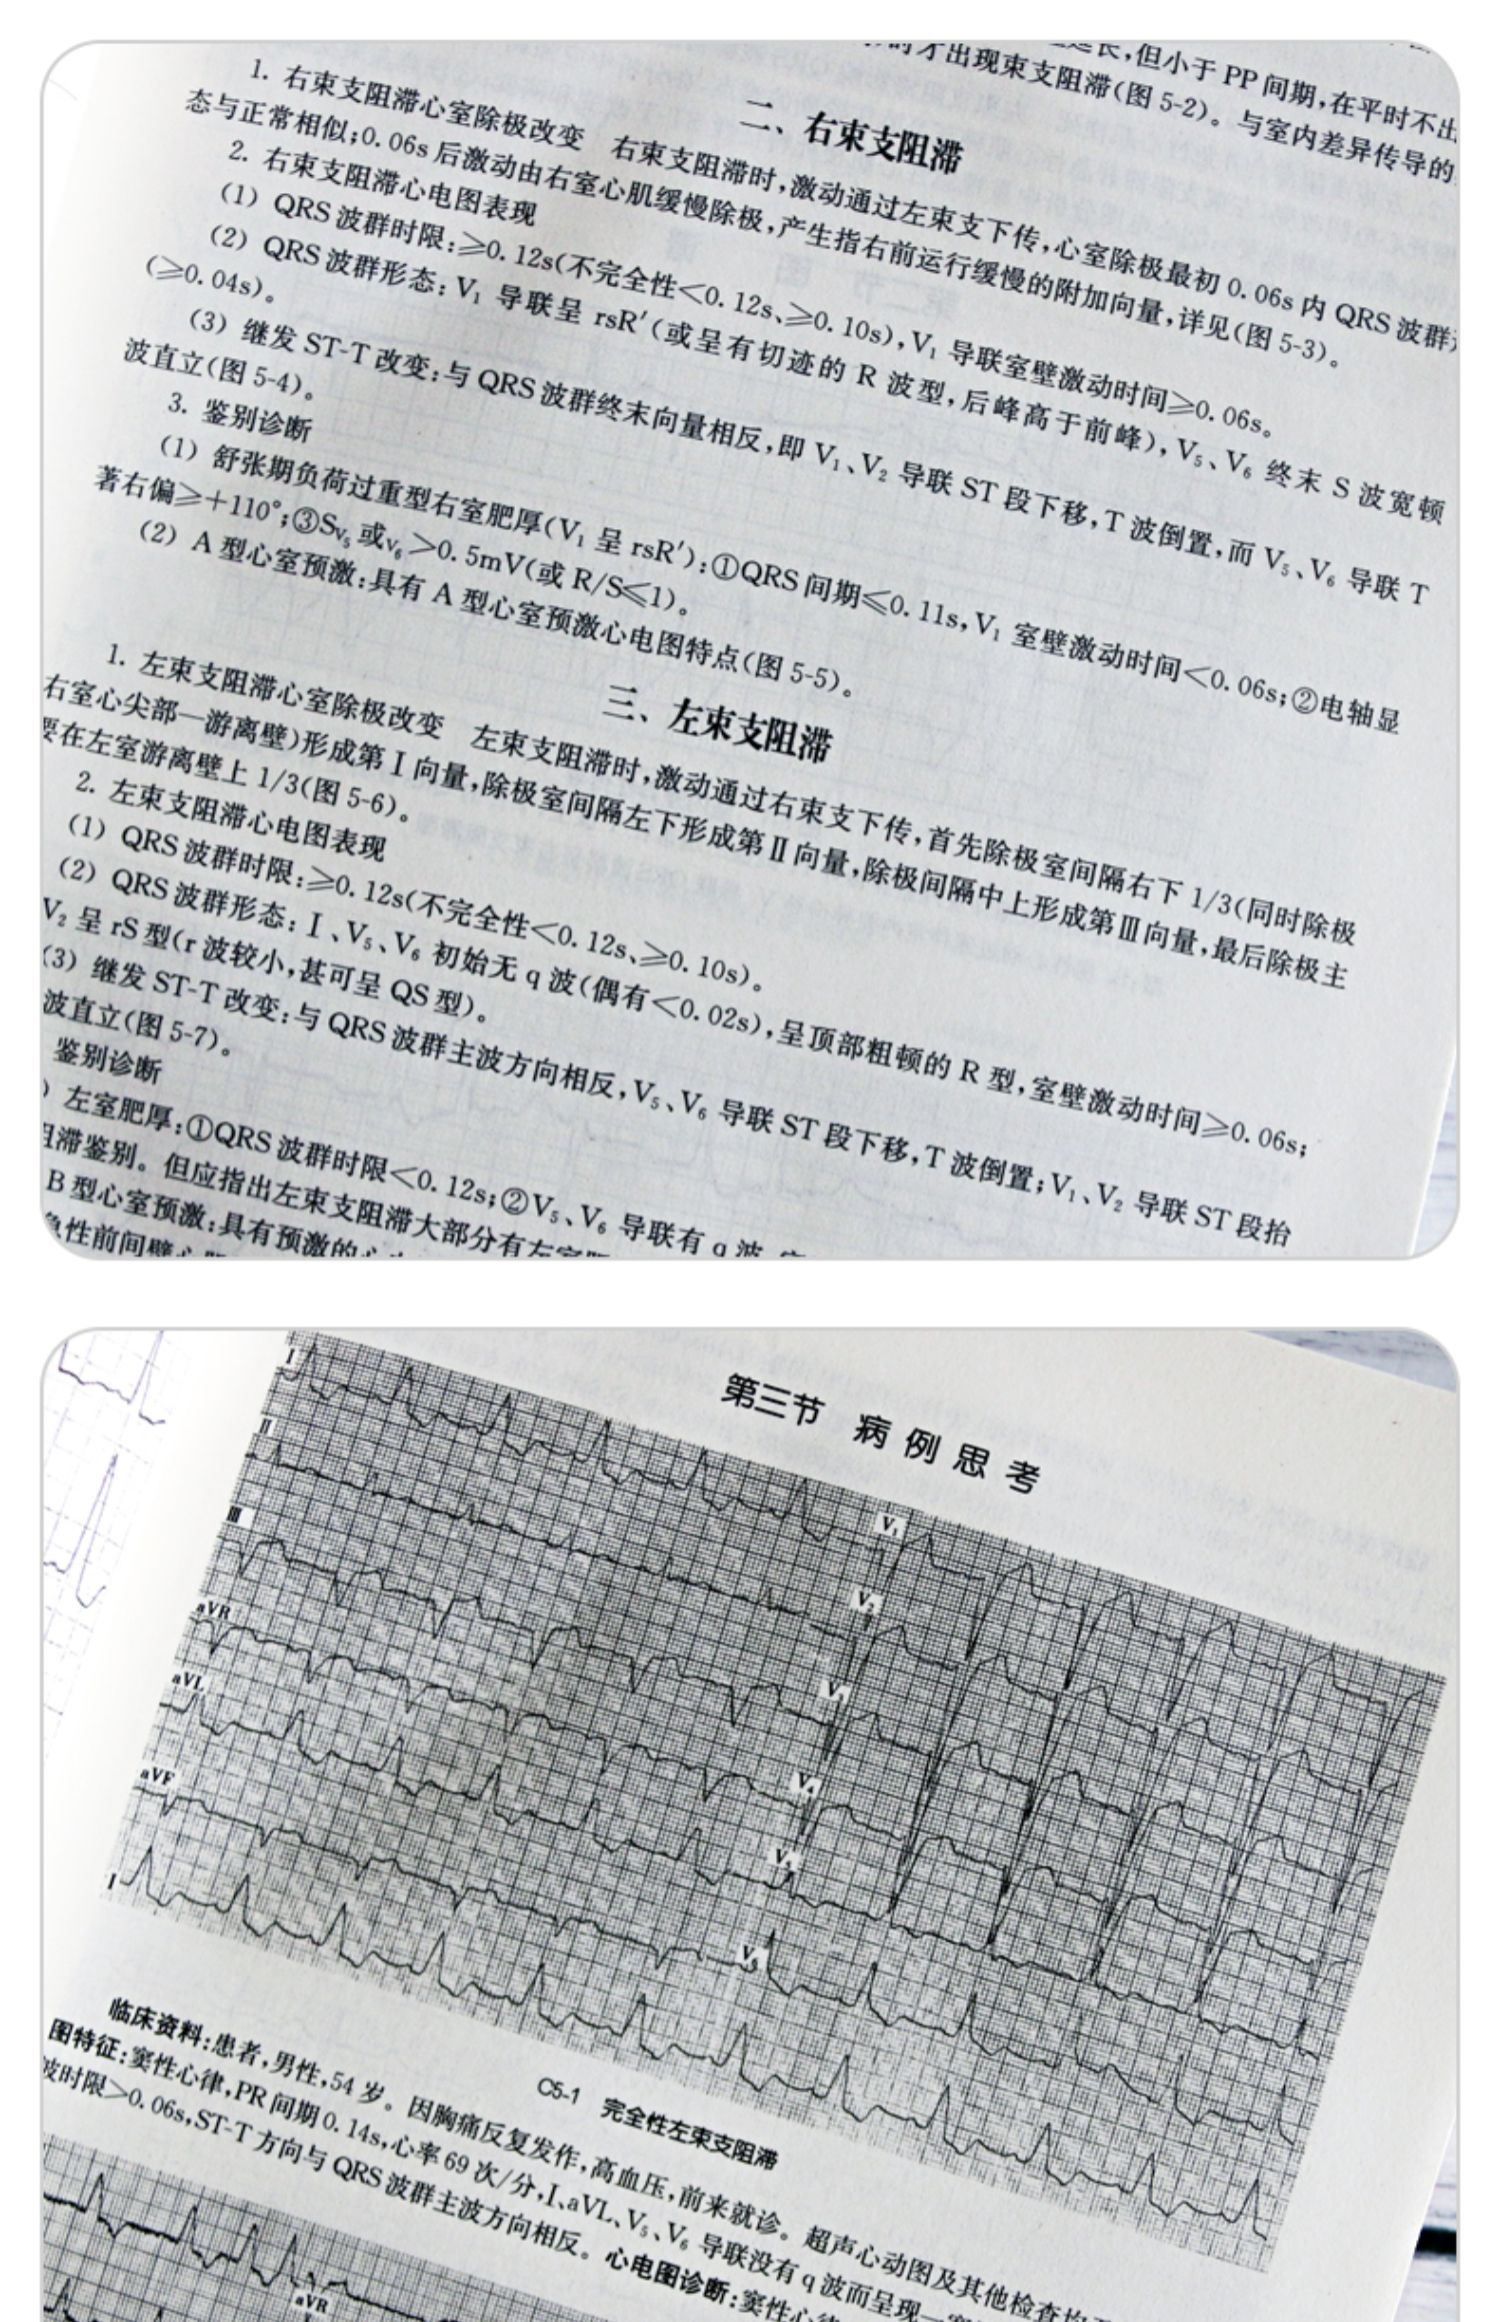 长,但小于 PP 间期,在平时不出
时才出现束支阻滞(图 5-2)。与室内差异传导的
二、右束支阻滞
1. 右束支阻滞心室除极改变 右束支阻滞时,激动通过左束支下传,心室除极最初 0.06s 内 QRS 波群
态与正常相似;0.06s 后激动由右室心肌缓慢除极,产生指右前运行缓慢的附加向量,详见(图 5-3)。
2. 右束支阻滞心电图表现
(1) QRS 波群时限:≥0.12s(不完全性<0.12s、≥0.10s),V₁ 导联室壁激动时间≥0.06s。
(2) QRS 波群形态:V₁ 导联呈 rsR′(或呈有切迹的 R 波型,后峰高于前峰),V₅、V₆ 终末 S 波宽顿
(≥0.04s)。
(3) 继发 ST-T 改变:与 QRS 波群终末向量相反,即 V₁、V₂ 导联 ST 段下移,T 波倒置,而 V₅、V₆ 导联 T
波直立(图 5-4)。
3. 鉴别诊断
(1) 舒张期负荷过重型右室肥厚(V₁ 呈 rsR′):①QRS 间期≤0.11s,V₁ 室壁激动时间<0.06s;②电轴显
著右偏≥+110°;③Sv₅ 或v₆>0.5mV(或 R/S≤1)。
(2) A 型心室预激:具有 A 型心室预激心电图特点(图 5-5)。
三、左束支阻滞
1. 左束支阻滞心室除极改变 左束支阻滞时,激动通过右束支下传,首先除极室间隔右下 1/3(同时除极
右室心尖部—游离壁)形成第Ⅰ向量,除极室间隔左下形成第Ⅱ向量,除极间隔中上形成第Ⅲ向量,最后除极主
要在左室游离壁上 1/3(图 5-6)。
2. 左束支阻滞心电图表现
(1) QRS 波群时限:≥0.12s(不完全性<0.12s、≥0.10s)。
(2) QRS 波群形态:Ⅰ、V₅、V₆ 初始无 q 波(偶有<0.02s),呈顶部粗顿的 R 型,室壁激动时间≥0.06s;
V₂ 呈 rS 型(r 波较小,甚可呈 QS 型)。
(3) 继发 ST-T 改变:与 QRS 波群主波方向相反,V₅、V₆ 导联 ST 段下移,T 波倒置;V₁、V₂ 导联 ST 段抬
波直立(图 5-7)。
鉴别诊断
) 左室肥厚:①QRS 波群时限<0.12s;②V₅、V₆ 导联有 q 波
阻滞鉴别。但应指出左束支阻滞大部分有左室
B 型心室预激:具有预激的心
急性前间壁心
第三节 病例思考
Ⅰ
Ⅱ
Ⅲ
aVR
aVL
aVF
Ⅰ
V₁
V₂
V₃
V₄
V₅
V₆
C5-1 完全性左束支阻滞
临床资料:患者,男性,54 岁。因胸痛反复发作,高血压,前来就诊。超声心动图及其他检查均
图特征:窦性心律,PR 间期 0.14s,心率 69 次/分,I、aVL、V₅、V₆ 导联没有 q 波而呈现一
波时限>0.06s,ST-T 方向与 QRS 波群主波方向相反。心电图诊断:窦性心律
aVR